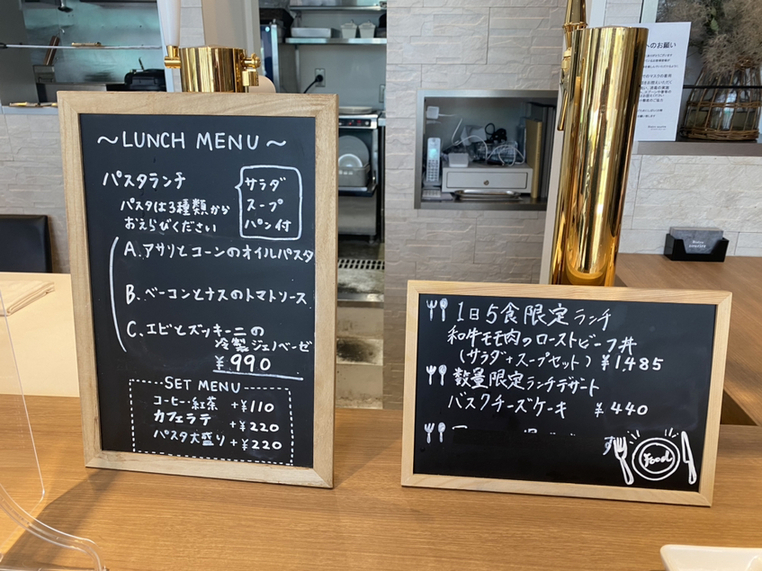 ～LUNCH MENU～
パスタランチ
パスタは3種類から
おえらびください
サラダ
スープ
パン付
A.アサリとコーンのオイルパスタ
B.ベーコンとナスのトマトソース
C.エビとズッキーニの
冷製ジェノベーゼ
¥990
SET MENU
コーヒー・紅茶 +¥110
カフェラテ +¥220
パスタ大盛り +¥220
1日5食限定ランチ
和牛モモ肉のローストビーフ丼
(サラダ+スープセット) ¥1,485
数量限定ランチデザート
バスクチーズケーキ ¥440
Food
へのお願い